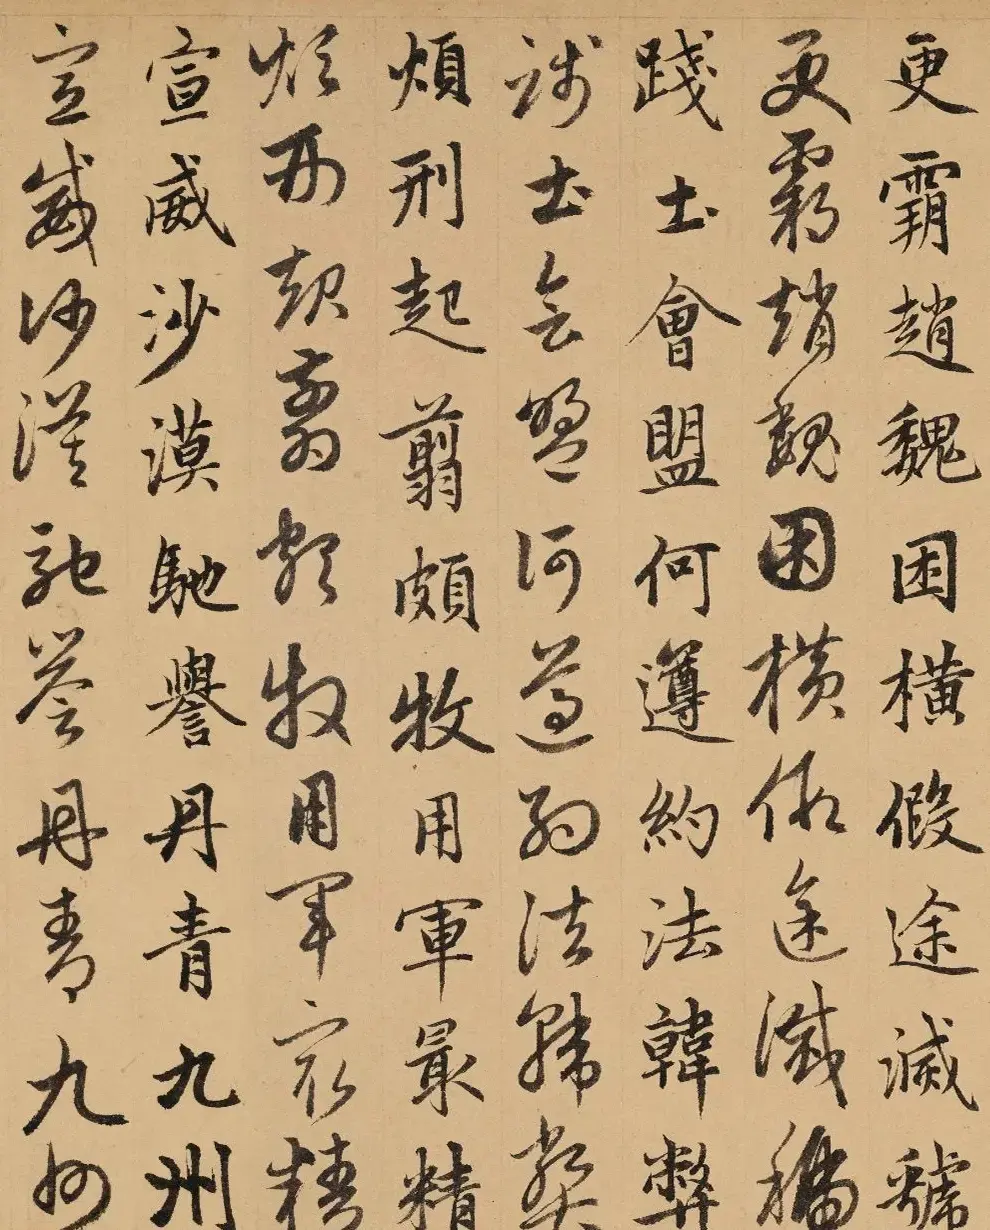 更霸趙魏困橫假途滅虢
更霸趙魏困橫假途滅虢
踐土會盟何遵約法韓弊
踐土會盟何遵約法韓弊
煩刑起翦頗牧用軍最精
煩刑起翦頗牧用軍最精
宣威沙漠馳譽丹青九州
宣威沙漠馳譽丹青九州